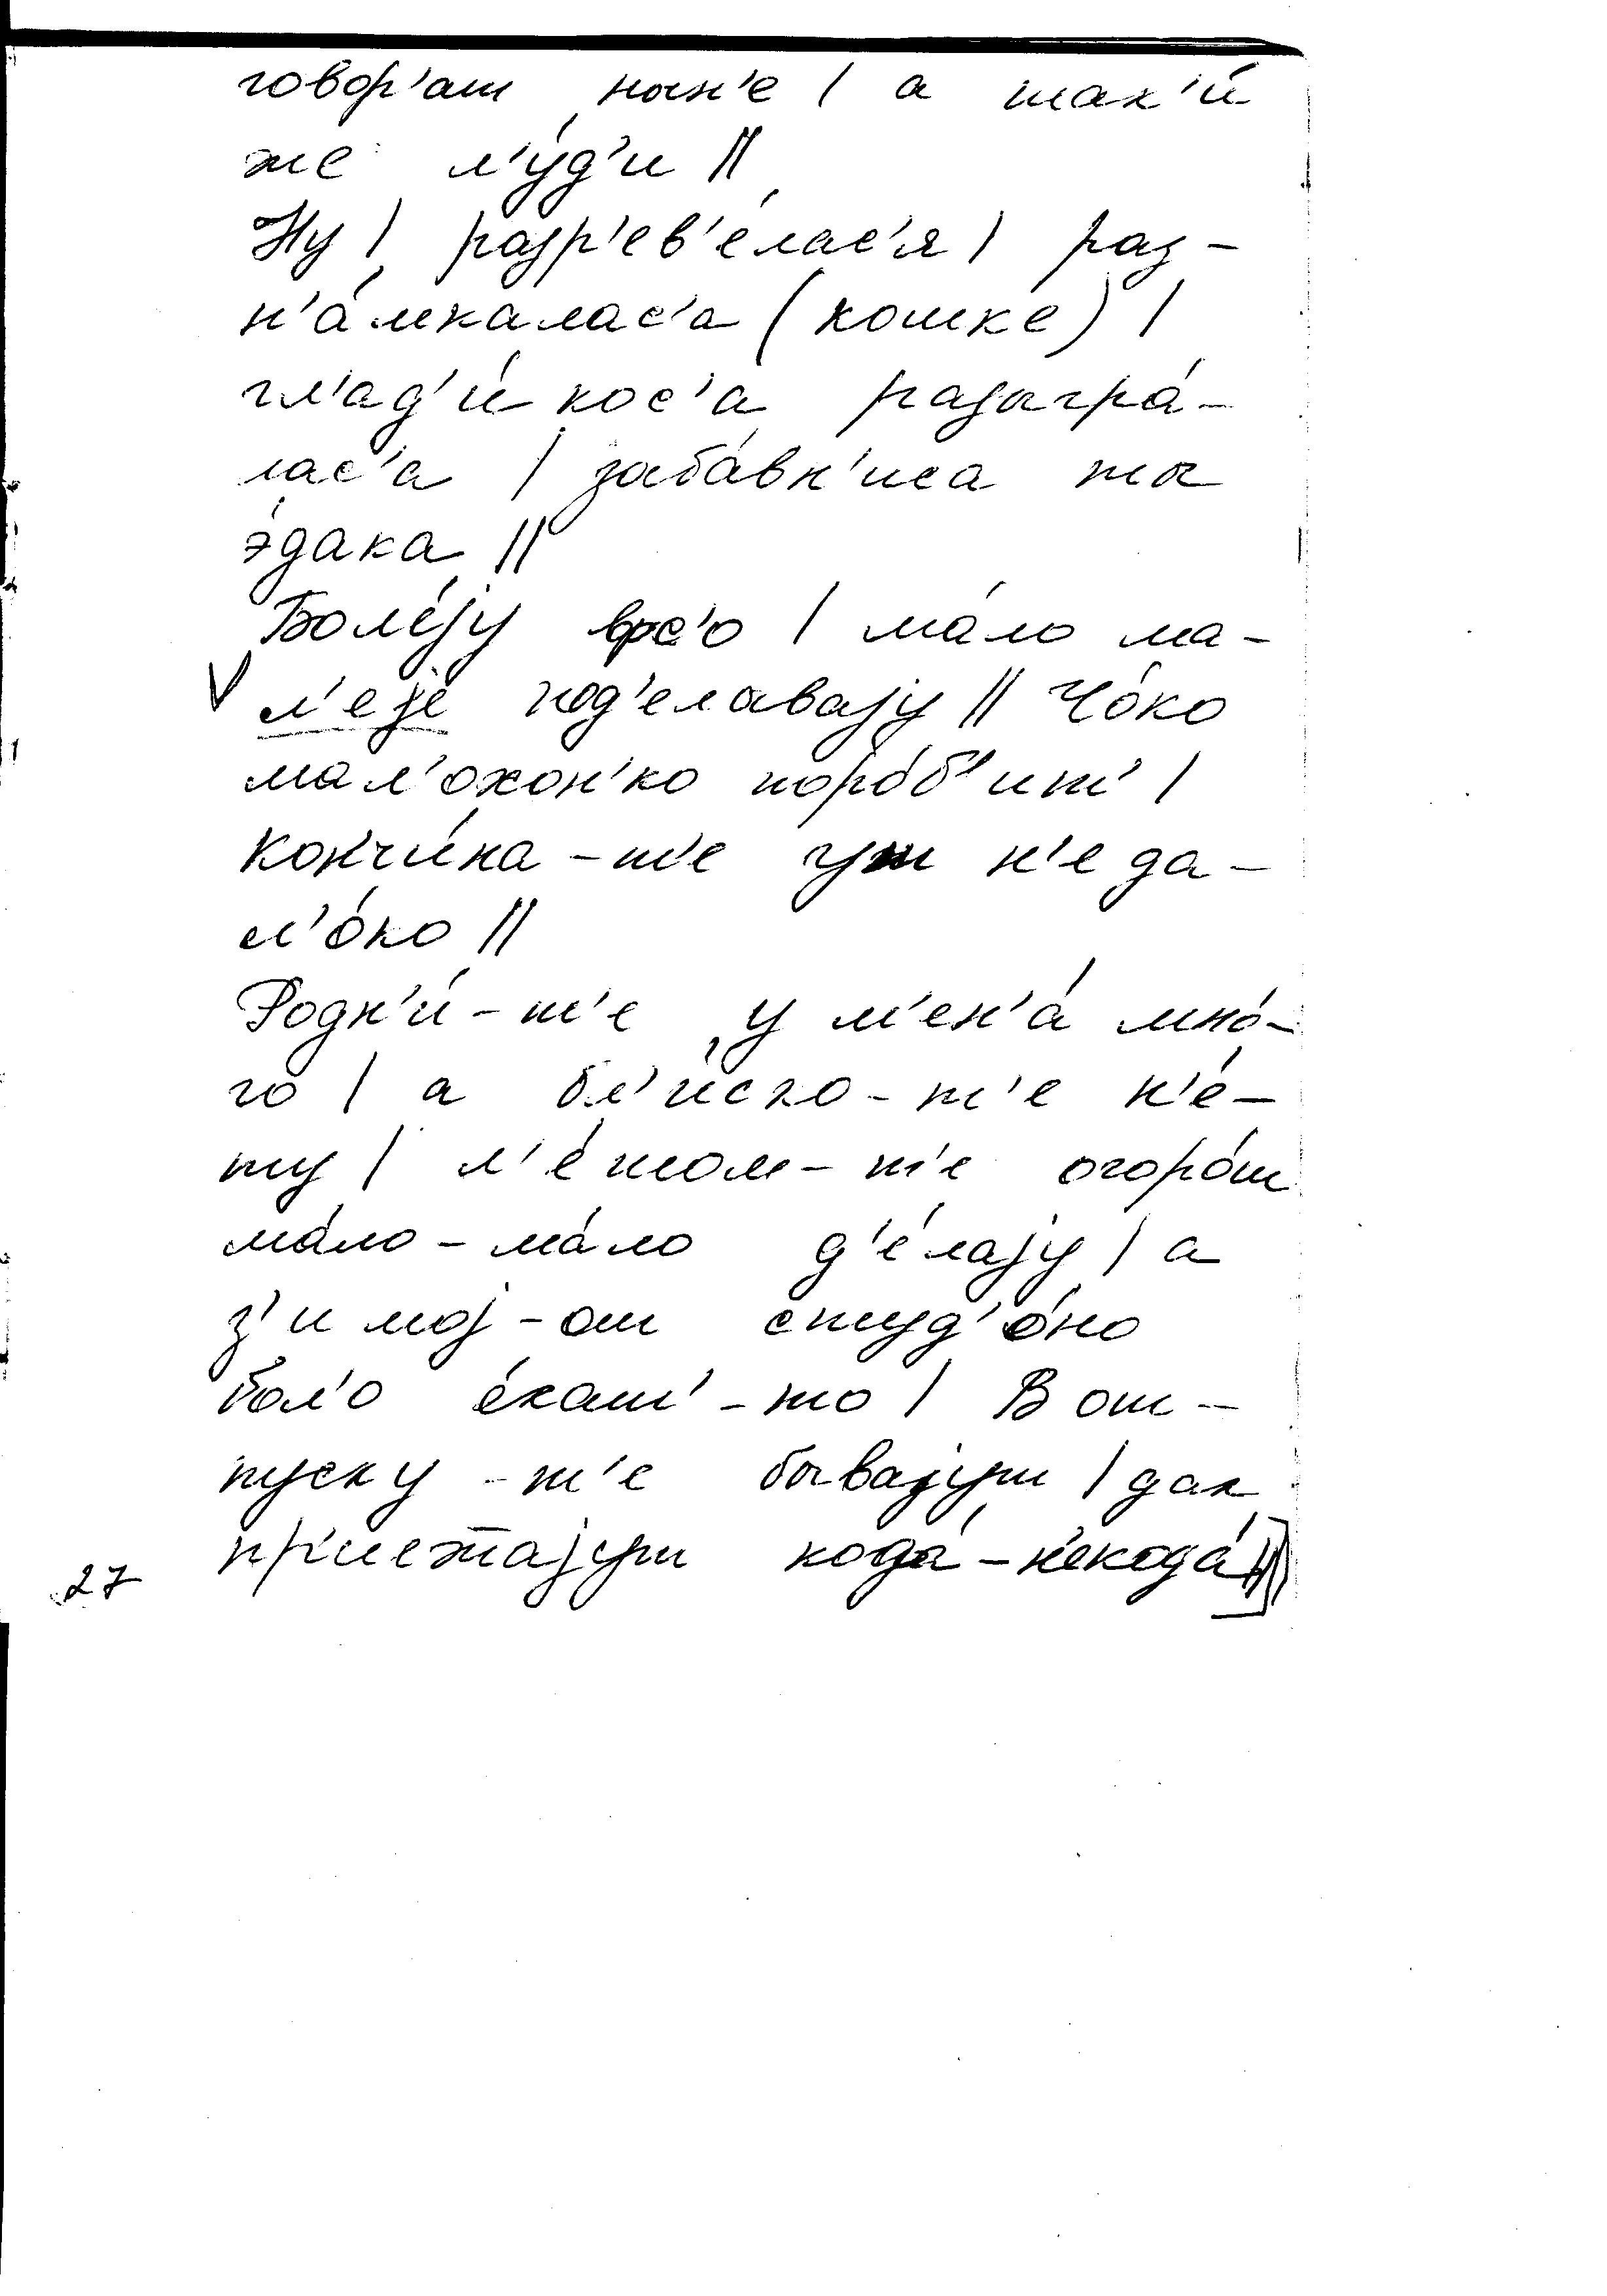 говор'ат ны́н'е | а так'и́
же л'у́д'и ||
Ну | разр'ев'е́лас'я | раз-
н'а́мкалас'а (кошке) |
гл'ад'и́кос'а разыгра́-
лас'а | заба́вн'иса ты
э́дака ||
Боле́jу вс'о | ма́ло ма-
л'еjе под'елываjу || Чо́ко
мал'охон'ко поро́б'ит' |
Кон'чи́на-т'е уш н'е да-
л'о́ко ||
Родн'и́-т'е у м'ен'а́ мно́-
го | а бл'и́ско-т'е н'е́-
ту | л'е́том-т'е огоро́т
ма́ло-ма́ло д'е́лаjу | а
з'имоj-от студ'о́но
бол'о е́хат'-то | В от-
пуску-т'е быва́jут | дак
пр'иежаjут кода́-н'екода́ ||
27